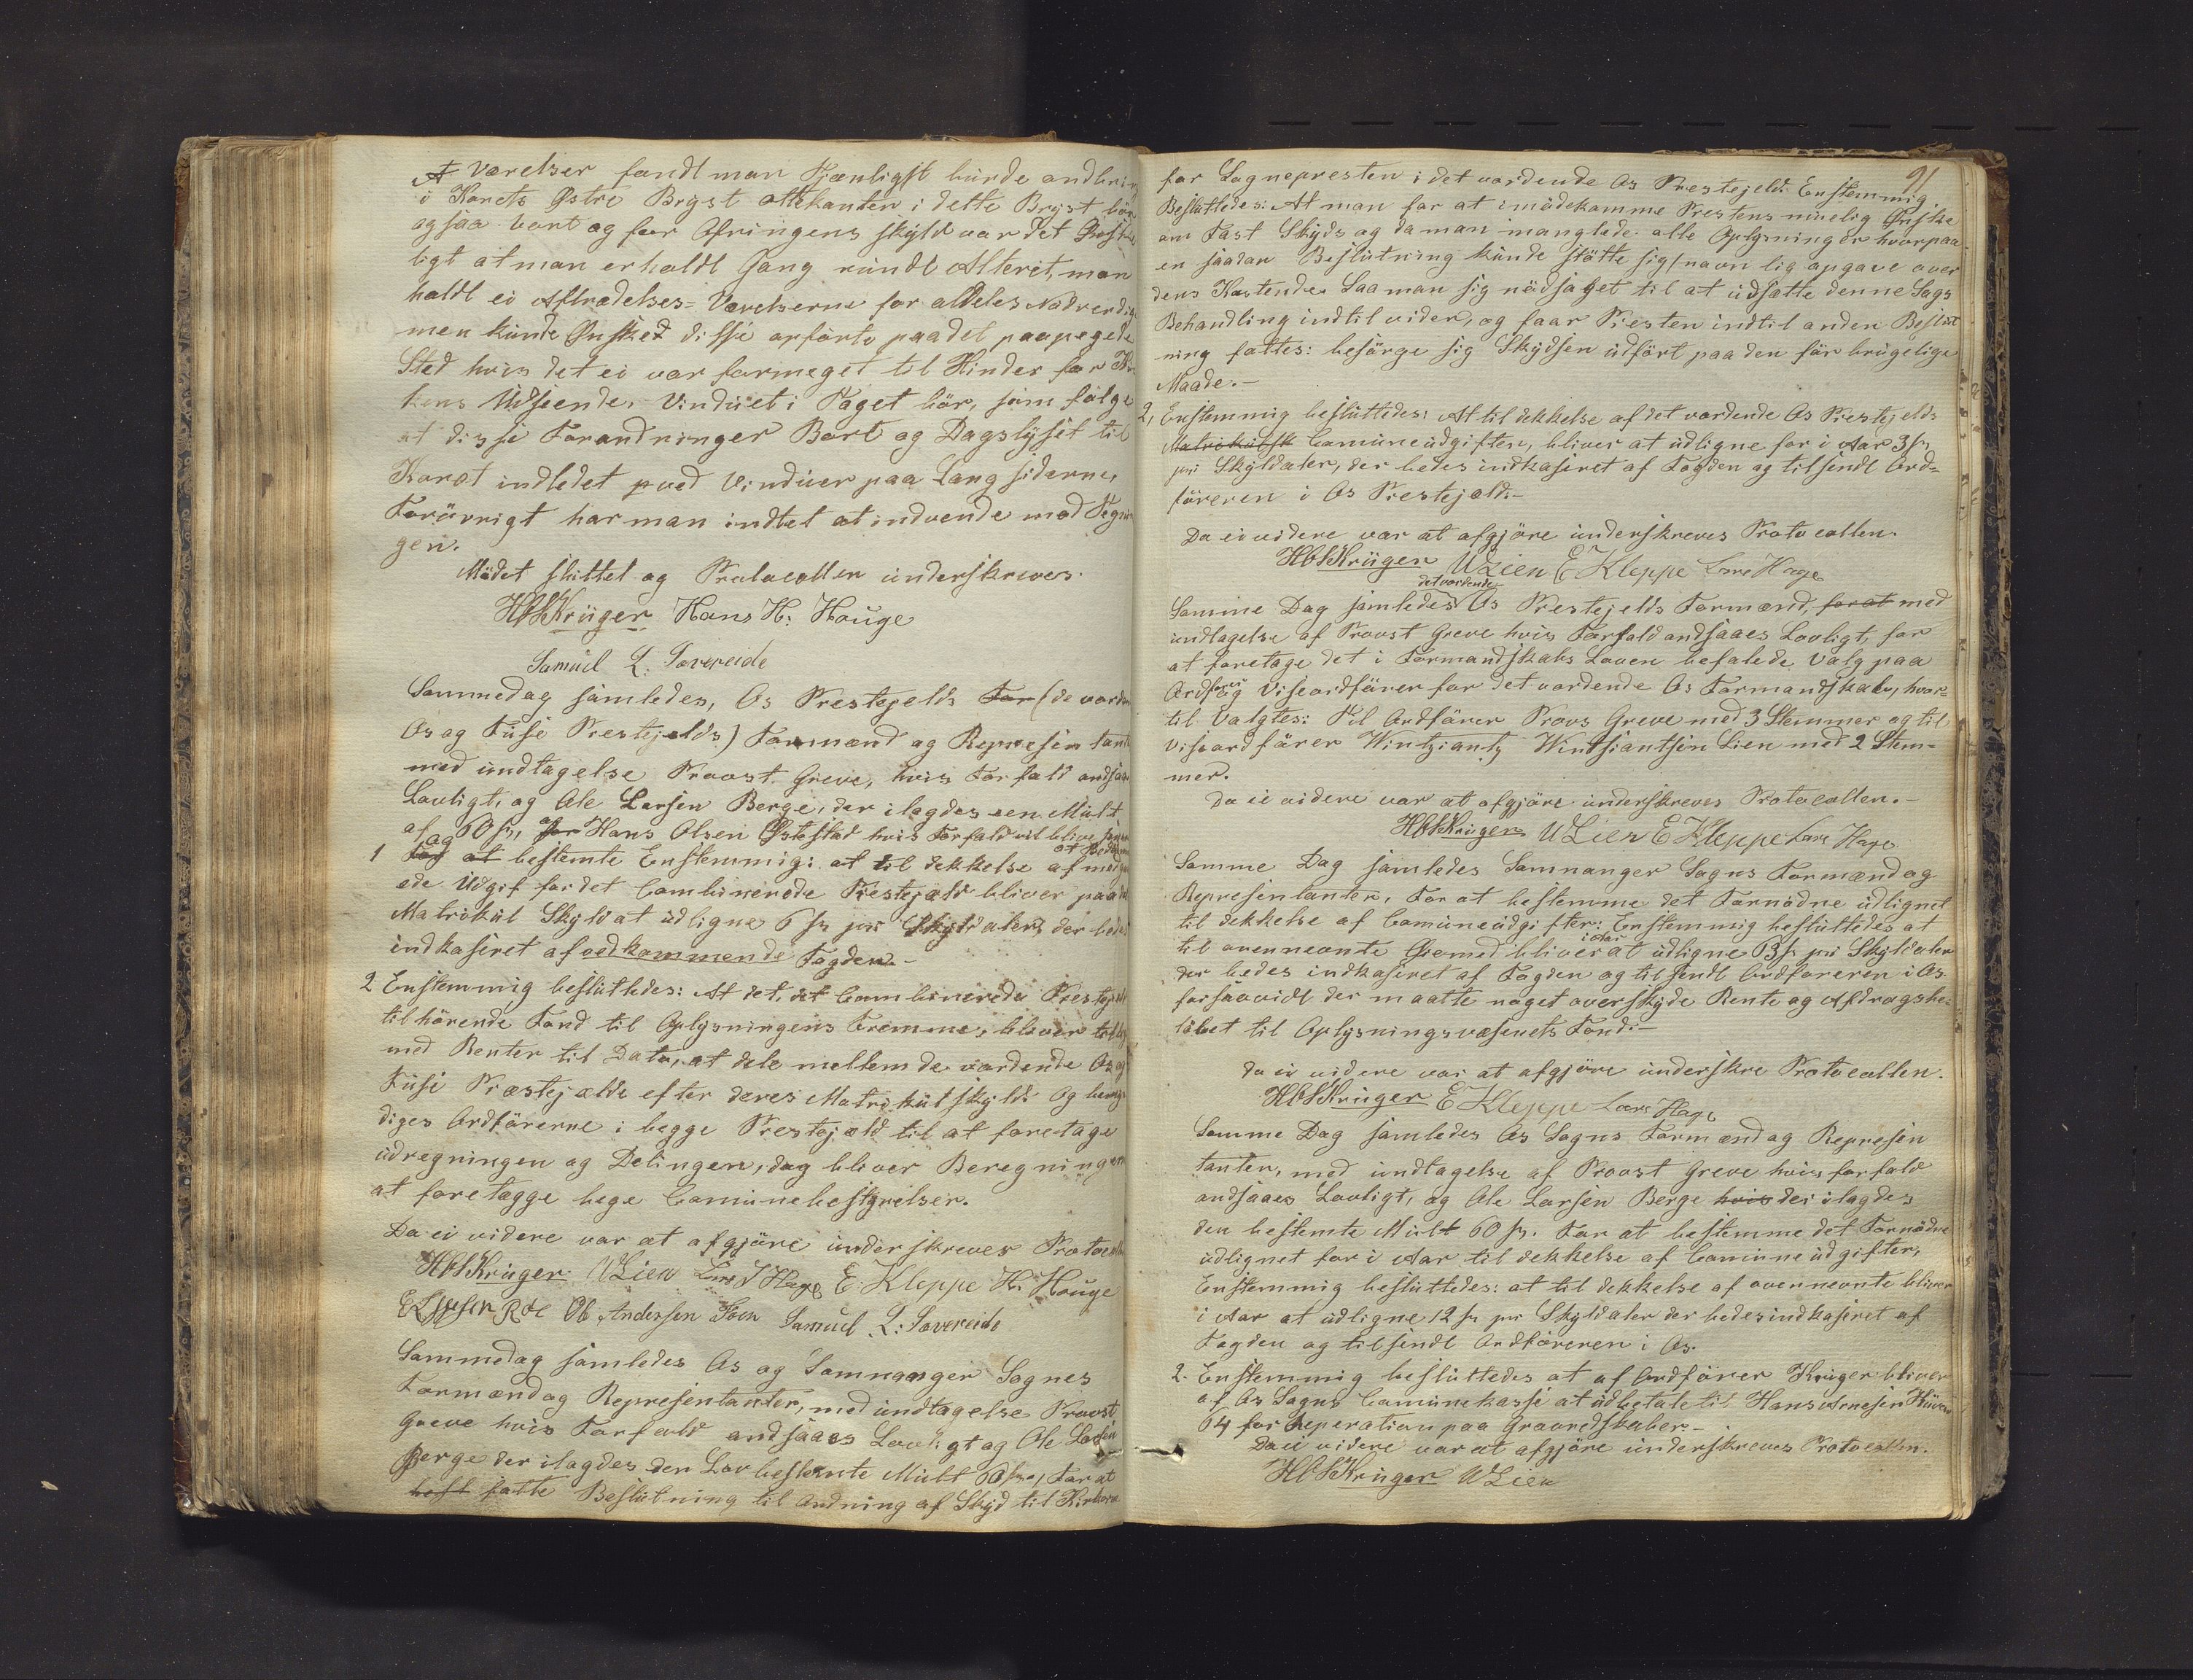 Værelser fandt man Tjenligst burde andbrin
i Korets Østre Bryst Ottekanten i dette Bryst bör
ogsaa bort og for Ofringens skyld var det Önske
ligt at man erholdt Gang rundt Alteret, man
holdt ei Aftrædelses-Værelserne for aldeles Nödvendig
men kunde Ønsked disse opförte paa det paapegede
Sted hvis det ei var formeget til Hinder for Kir
kens Udseende. Vinduet i Taget bör, som fölge
at disse Forandringer Bort og Dagslyset til
Koret indledet ved Vinduer paa Langsiderne.
Forövrigt har man indtet at indvende mod Tegnin
gen.
Mödet sluttet og Protocollen underskreves.
HOSKrüger Hans H: Hauge
Samuel L: Tovereide
Sammedag samledes, Os Prestejelds For (de vorden
Os og Fuse Prestejelds) Formænd og Represintant
med undtagelse Provst Greve, hvis Forfald andsaaes
Lovligt, og Ole Larsen Berge, der ilagdes een Mult
af 60 s, og for Hans Olsen Østestad hvis Forfald vil blive
1 og at bestemte Enstemmig: at til dekkelse af
ede Udgif for det Combinerede Prestejeld bliver paa
Matrikul Skyld at udligne 6 s pr Skyldaler, der bedes
indkaseret af vedkommende Fogden.-
2 Enstemmig besluttedes: At det, det Combinerede Prestejeld
tilhörende Fond til Oplysningens Fremme, bliver
med Renter til Dato, at dele mellem de vordende Os og
Fuse Præstejælde efter deres Matrikulskyld og bemyn
diges Ordförerne i begge Prestejæld til at foretage
udregningen og Delingen, dog bliver Beregningen
at foretægge bege Comunebestyrelser.
Da ei videre var at afgjöre underskreves Protocoll
HOSKrüger WLien Lars J Hage E Kleppe H. Hauge
Ol: Andersen Samuel L: Tovereide
Sammedag samledes Os og Samnanger Sognes
Formænd og Represintanter, med undtagelse Provst
Greve hvis Forfald andsaaes Lovligt og Ole Larsen
Berge der ilagdes den Lovbestemte Mult 60 s, For at
best fatte Beslutning til Ordning af Skyd til Kirkerne
91
for Sognepresten i det vordende Os Prestejeld. Enstemmig
Besluttedes: At man for at imödekomme Prestens munelig Ønske
om Fast Skyds og da man manglede alle Oplysninger hvorpaa
en saadan Beslutning kunde stötte sig, navnlig opgave over
dens Kostende. Saa man sig nödsaget til at udsætte denne Sags
Behandling indtil vider, og faar Presten indtil anden Beslut
ning fattes: besörge sig Skydsen udfört paa den för brugelige
Maade.-
2, Enstemmig besluttedes: At til dekkelse af det vordende Os Prestejelds
Matrikulsk Comuneudgifter, bliver at udligne for i Aar 3 s
pr Skyldaler, der bedes indkaseret af Fogden og tilsendt Ord=
föreren i Os Prestejeld.-
Da ei videre var at afgjöre underskreves Protocollen.
HOSKrüger WLien E Kleppe Lars Hage
Samme Dag samledes det vordende Os Prestejelds Formænd, for at med
undtagelse af Provst Greve hvis Forfald andsaaes Lovligt, for
at foretage det i Formandskabs Loven befalede Valg paa
Ordförer og Viseordförer for det vordende Os Formandskab, hvor=
til Valgtes: Til Ordförer Provs Greve med 3 Stemmer og til
Viseordförer Wintziantz Wintsiantsen Lien med 2 Stem=
mer.
Da ei videre var at afgjöre underskreves Protocollen.-
HOSKrüger WLien E Kleppe Lars Hage
Samme Dag samledes Samnanger Sogns Formænd og
Represintanter, For at bestemme det Fornödne udlignet
til dekkelse af Comuneudgifter: Enstemmig besluttedes at
til ovennevnte Öiemed bliver i Aar at udligne 13 s pr Skyldaler
der bedes indkaseret af Fogden og tilsendt Ordföreren i Os
forsaavidt der maatte noget overskyde Rente og Afdragsbe=
löbet til Oplysningsvæsenets Fond.-
da ei videre var at afgjöre underskre Protocollen.
HOSKrüger E Kleppe Lars Hage
Samme Dag samledes Os Sogns Formænd og Represin
tanter, med undtagelse af Provst Greve hvis forfald
andsaaes Lovligt, og Ole Larsen Berge hvis der ilagdes
den bestemte Mult 60 s. For at bestemme det Fornödne
udlignet for i Aar til dekkelse af Comuneudgifter,
Enstemmig besluttedes: at til dekkelse af ovennevnte bliver
i Aar at udligne 12 s pr Skyldaler der bedes indkaseret af
Fogden og tilsendt Ordföreren i Os.
2. Enstemmig besluttedes at af Ordförer Krüger bliver
af Os Sogns Comunekasse at udbetale til Hans Arnesen
64 for Reperation paa Gravredskaber.-
Da ei videre var at afgjöre underskreves Protocollen.
HOSKrüger WLien